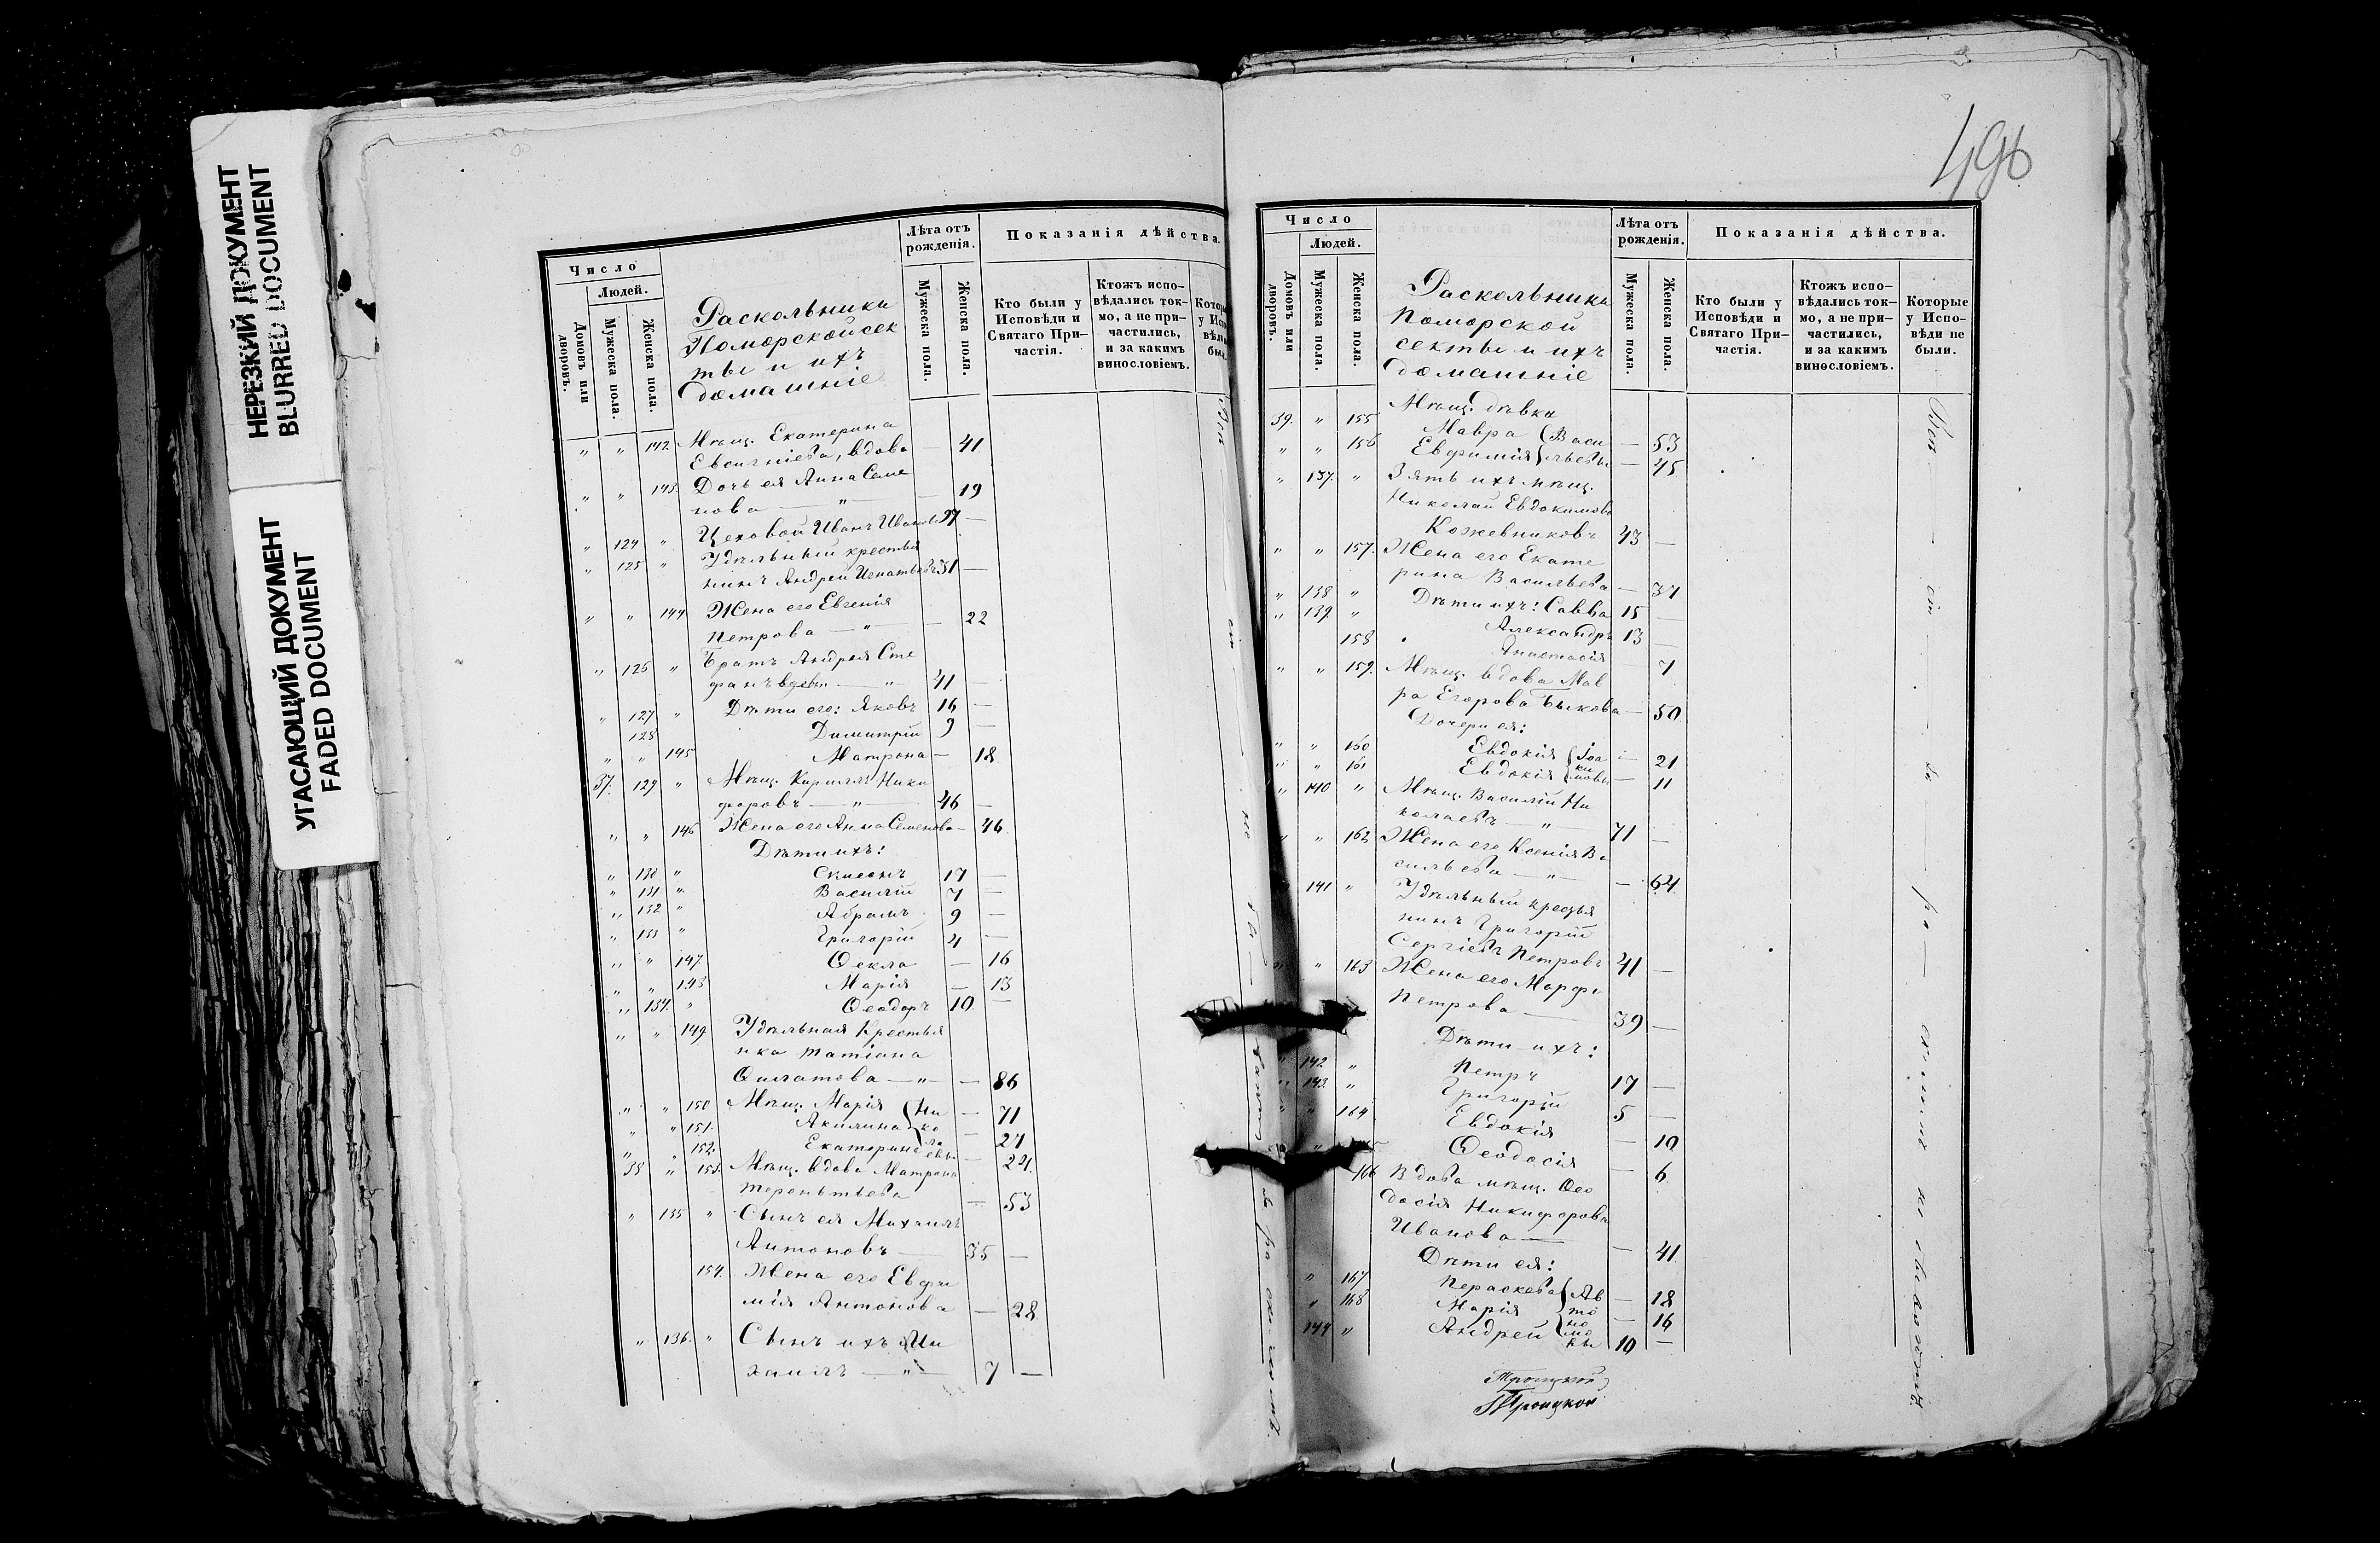 НЕРЕЗКИЙ ДОКУМЕНТ
BLURRED DOCUMENT
УГАСАЮЩИЙ ДОКУМЕНТ
FADED DOCUMENT
Число
Людей.
Домовъ или дворовъ.
Мужеска пола.
Женска пола.
Раскольники
Поморской сек
ты и ихъ
домашніе
Лѣта отъ
рожденія.
Мужеска пола.
Женска пола.
Показанія дѣйства.
Кто были у
Исповѣди и
Святаго При-
частія.
Ктожъ испо-
вѣдались ток-
мо, а не при-
частились,
и за какимъ
винословіемъ.
" " 142 Мѣщ. Екатерина
Евсигніева, вдова — 41
" " 143. Дочь ея Анна Семе
нова — " — — 19
" 124 " Цеховой Иванъ Иванов 27 —
" 125 " Удѣльный крестья
нинъ Андрей Игнатьевъ 31 —
" " 144 Жена его Евгенія
Петрова — " — — 22
" 126 " Братъ Андрея Сте
фанъ вдовъ — " — 41 —
" 127 " Дѣти его: Яковъ 16 —
128 Димитрій 9 —
" " 145 Матрона — 18.
37. 129 " Мѣщ. Кириллъ Ники
форовъ — " — 46 —
" " 146 Жена его Анна Семенова — 46.
Дѣти ихъ:
" 130 " 17 —
" 131 " Василій 7 —
" 132 " Абрамъ 9 —
" 133 " Григорій 4 —
" " 147 Ѳекла — 16
" " 148 Марія — 13
" 134. " Ѳеодоръ 10 —
" " 149 Удѣльная Крестья
нка Татіана
Филатова — " — — 86
" " 150 Мѣщ. Марія Ни — 71
" " 151. Акилина ко — 27
" " 152. Екатерина ла евы — 24.
38 " 153. Мѣщ. вдова Матрона
Терентьева — 53
" 135 " Сынъ ея Михаилъ
Антоновъ — 35 —
154. Жена его Евфи
мія Антонова — 28
" 136. " Сынъ ихъ Ми
хаилъ — " — 7 —
496
Число
Людей.
Домовъ или дворовъ.
Мужеска пола.
Женска пола.
Раскольники
Поморской
секты и ихъ
домашніе
Лѣта отъ
рожденія.
Мужеска пола.
Женска пола.
Показанія дѣйства.
Кто были у
Исповѣди и
Святаго При-
частія.
Ктожъ испо-
вѣдались ток-
мо, а не при-
частились,
и за какимъ
винословіемъ.
Которые
у Испо-
вѣди не
были.
Мѣщ. дѣвки
39. " 155 Мавра Васи — 53
" " 156 Евфимія льевы — 45
" 137. " Зять ихъ мѣщ.
Николай Евдокимовъ
Кожевниковъ 43 —
" " 157. Жена его Екате
рина Васильева — 37
" 138 " Дѣти ихъ: Савва 15 —
" 139. " Александръ 13 —
158 Анастасія — 7
" " 159. Мѣщ. вдова Мав
ра Егорова Быкова — 50
Дочери ея:
" " 160 Евдокія Іоа — 21
" " 161 Евдокія ки мовы — 11
" 140 " Мѣщ. Василій Ни
колаевъ — " — 71 —
" " 162 Жена его Ксенія Ва
сильева — " — — 64
141 " Удѣльный крестья
нинъ Григорій
Сергіевъ Петровъ 41 —
" " 163 Жена его Марфа
Петрова — 39 —
Дѣти ихъ:
" 142 " Петръ 17 —
" 143. " Григорій 5 —
" " 164 Евдокія — 10
Ѳеодосія — 6
166 Вдова мѣщ. Ѳео
досія Никифорова
Иванова — — 41
Дѣти ея:
" 167 Параскева Ав — 18
" 168 Марія то — 16
144 " Андрей но мо вы 10 —
Троицкой
Троицкой